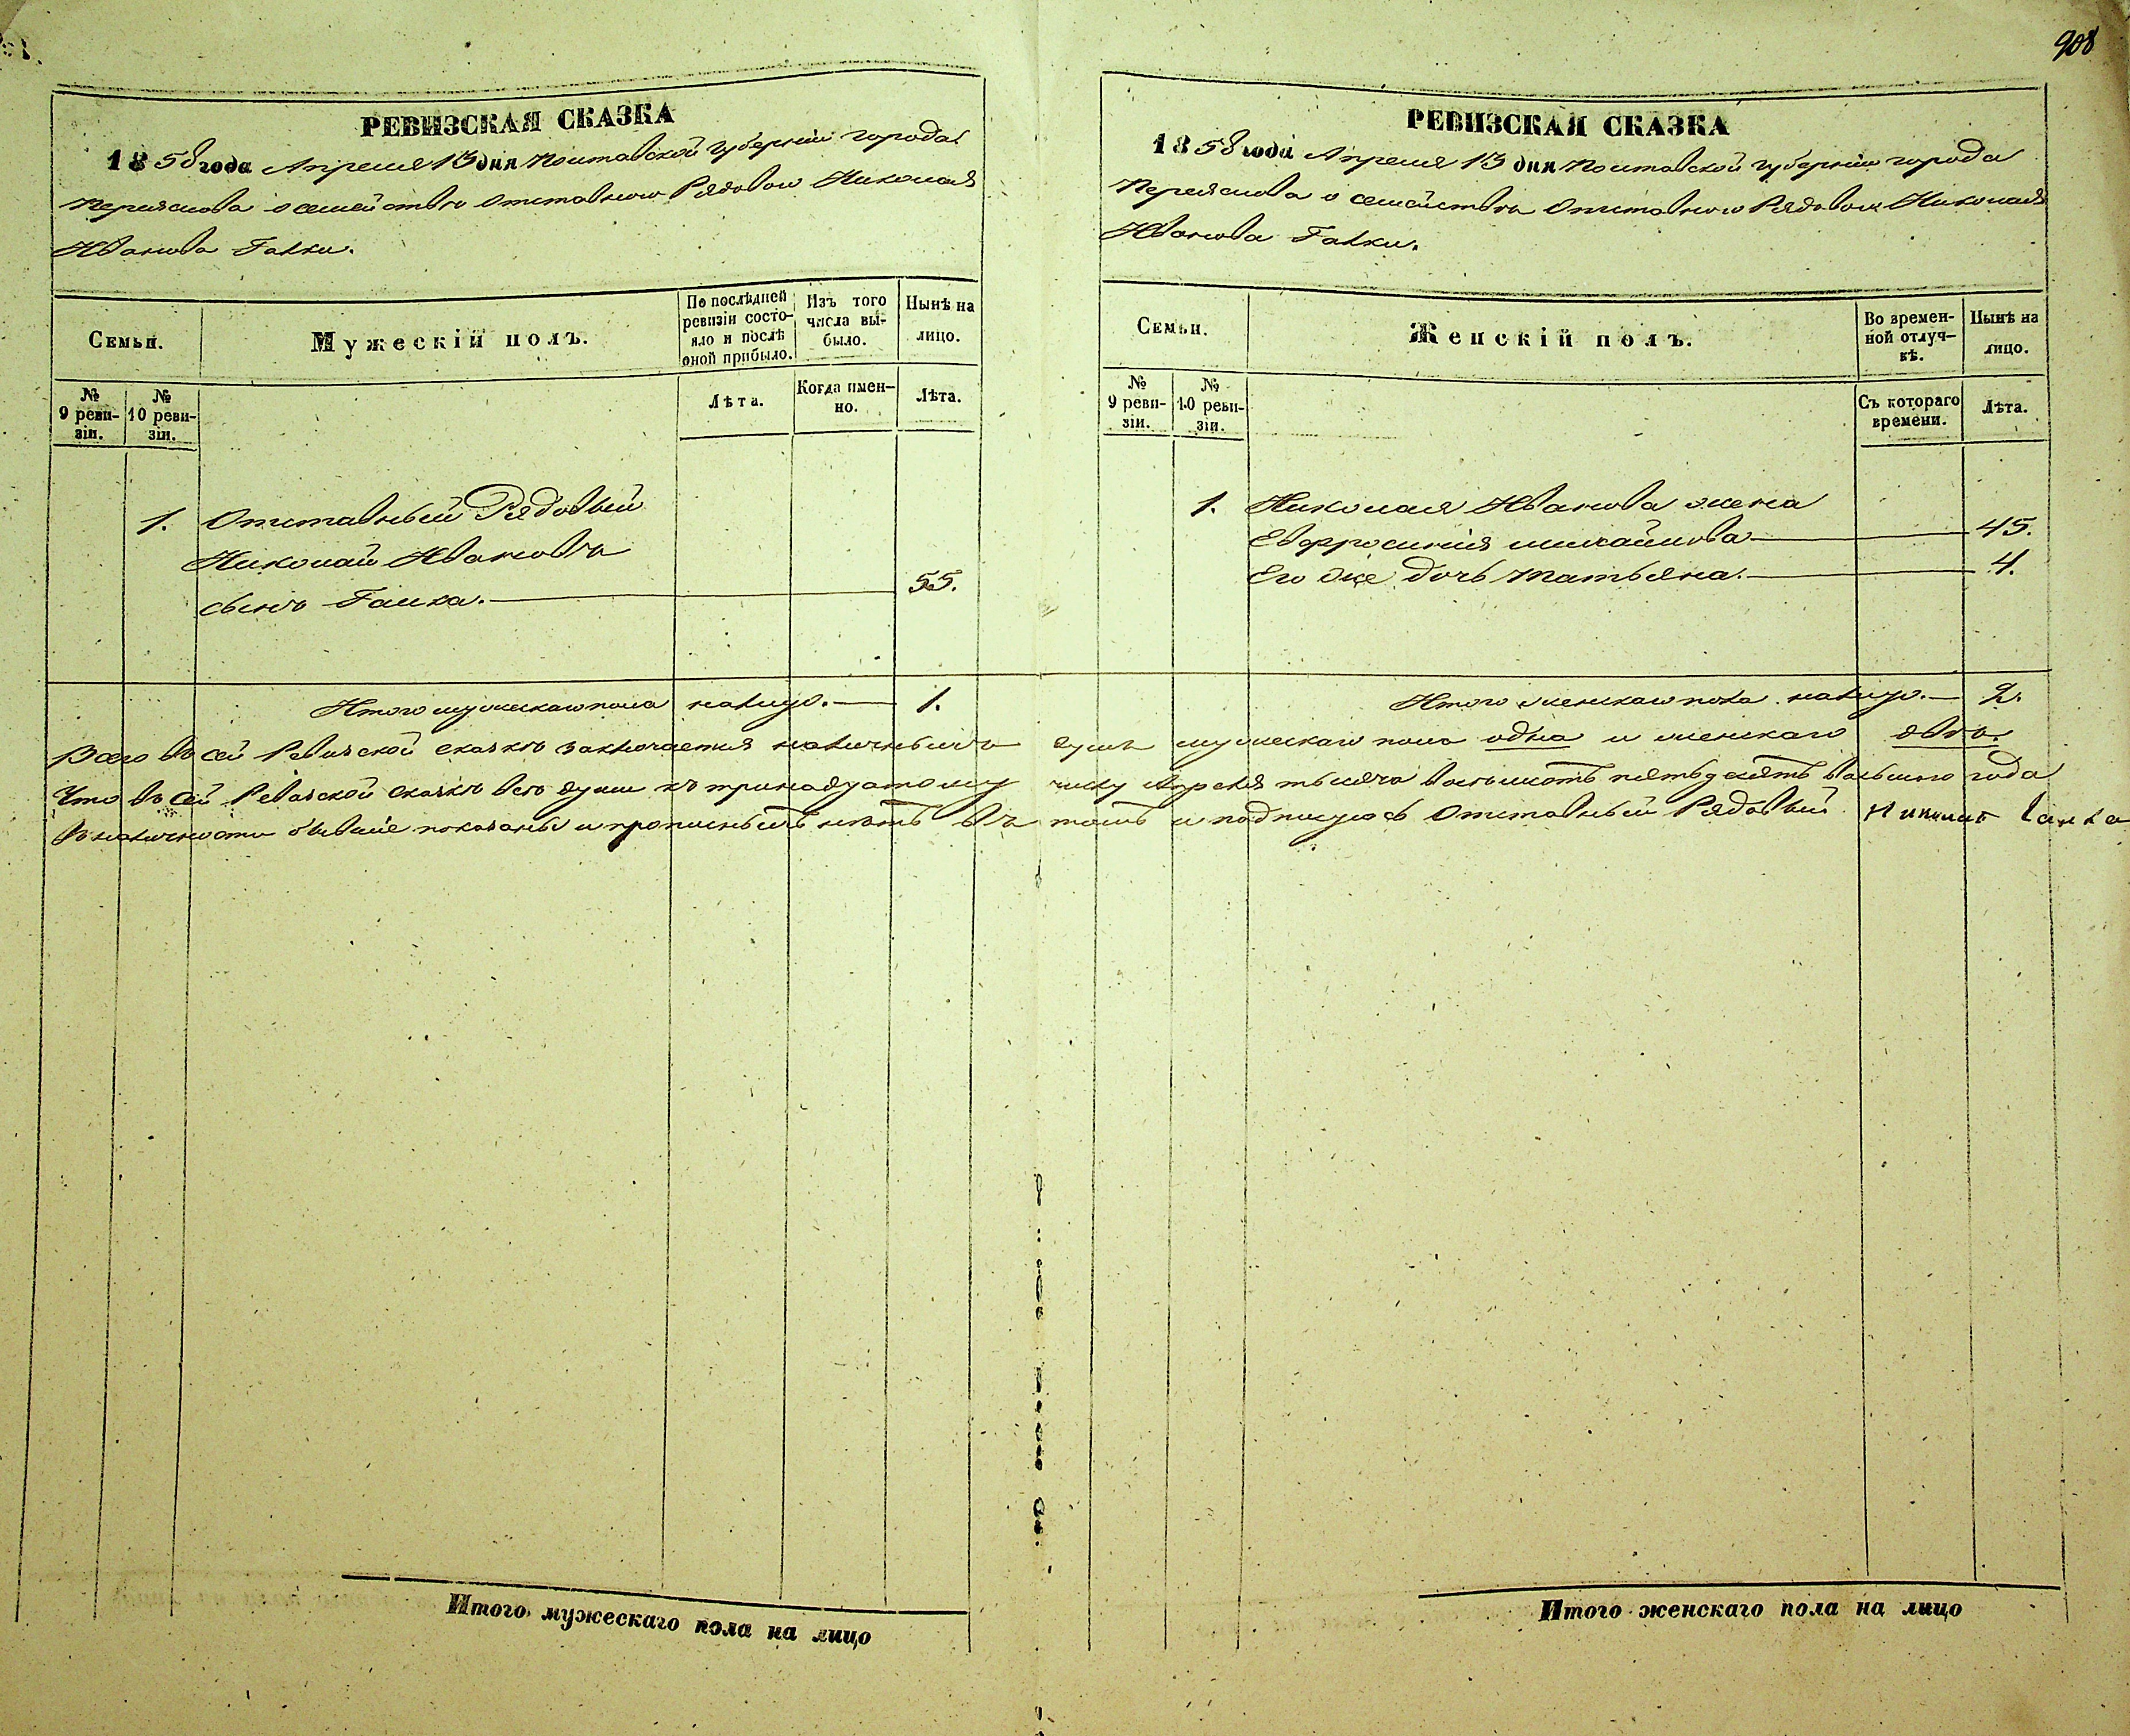 908
РЕВИЗСКАЯ СКАЗКА
1858 года Апреля 13 дня Полтавской Губерніи города
Переяслова о семействѣ Отставного Рядового Николая
Иванова Галки.
Семьи.
Мужескій полъ.
По послѣдней ревизіи состояло и послѣ оной прибыло.
Изъ того числа выбыло.
Нынѣ на лицо.
№ 9 ревизіи.
№ 10 ревизіи.
Лѣта.
Когда именно.
Лѣта.
1. Отставный Рядовый
Николай Ивановъ
сынъ Галка. 55.
Итого мужескаго пола налицо. 1.
РЕВИЗСКАЯ СКАЗКА
1858 года Апреля 13 дня Полтавской Губерніи города
Переяслова о семействѣ Отставного Рядового Николая
Иванова Галки.
Семьи.
Женскій полъ.
Во временной отлучкѣ.
Нынѣ на лицо.
№ 9 ревизіи.
№ 10 ревизіи.
Съ котораго времени.
Лѣта.
1. Николая Иванова жена
Евфросинія Михайлова 45.
Его же дочь Татьяна. 4.
Итого женскаго пола налицо. 2.
Всего въ сей Ревизской сказкѣ заключается наличныхъ душъ мужескаго пола одна и женскаго двѣ.
Что въ сей Ревизской сказкѣ всѣ души къ тринадцатому числу Апреля тысяча восемьсотъ пятьдесятъ восьмого года
въ наличности бывшіе показаны и прописныхъ нѣтъ въ томъ и подписуюсь Отставный Рядовый Николай Галка
Итого мужескаго пола на лицо
Итого женскаго пола на лицо